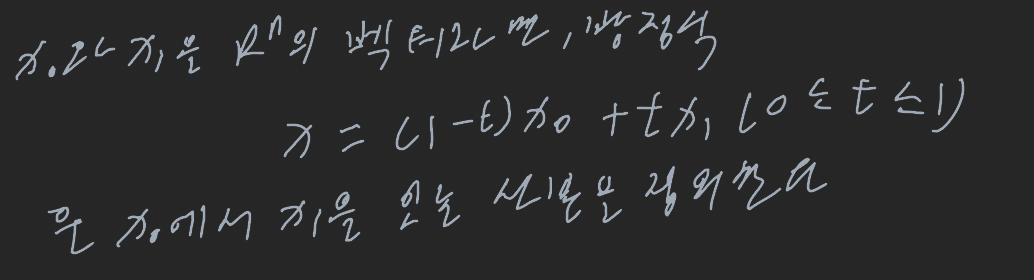 x₀과 x₁을 Rⁿ의 벡터라면, 방정식
x = (1-t)x₀ + tx₁ (0 ≤ t ≤ 1)
은 x₀에서 x₁을 잇는 선분을 정의한다